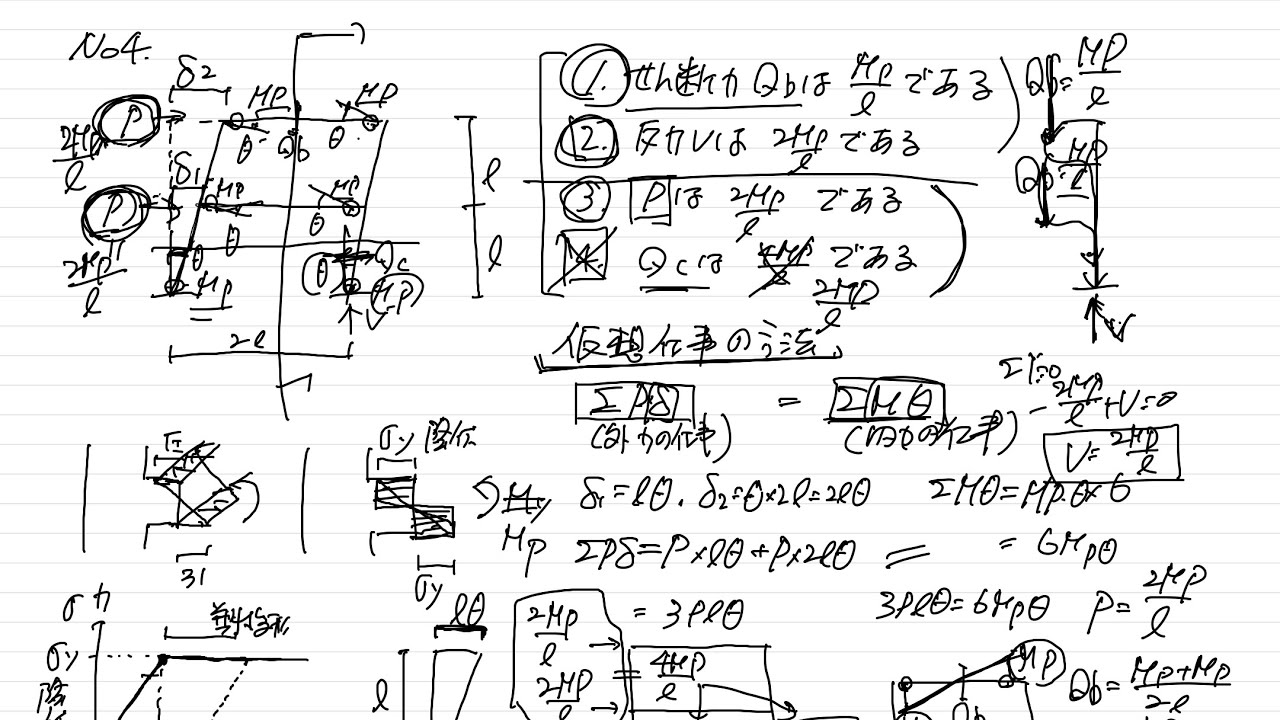 No4.
δ2
MP
MP
P
θ
Qb
θ
2MP/l
δ1
MP
MP
P
θ
θ
θ
2MP/l
MP
θ
Qc
(MP)
V
2l
l
l
1. せん断力 Qbは MP/l である
2. 反力Vは 2MP/l である
3 Pは 2MP/l である
4. Qcは 4MP/l である
2MP/l
Qb=MP/l
Qb=MP/l
V
仮想仕事の方法
ΣPδ = ΣMθ
(外力の仕事) (内力の仕事)
ΣY=0
-2MP/l+V=0
V=2MP/l
σy 降伏
σy
MP
δ1=lθ. δ2=θ×2l=2lθ ΣMθ=MP・θ×6
ΣPδ=P×lθ+P×2lθ = = 6MPθ
= 3Plθ 3Plθ=6MPθ P=2MP/l
σ
σy
lθ
l
2MP/l
2MP/l
= 4MP/l
MP
Qb
Qb=MP+MP/2l